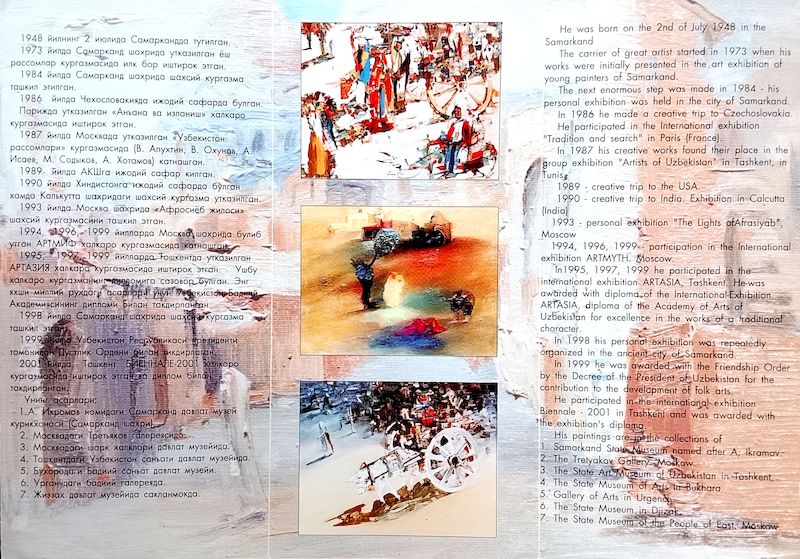 1948 йилнинг 2 июлида Самаркандда тугилган.
1973 йилда Самарканд шахрида утказилган ёш
рассомлар кургазмасида илк бор иштирок этган.
1984 йилда Самарканд шахрида шахсий кургазма
ташкил этилган.
1986 йилда Чехословакияда ижодий сафарда булган.
Парижда утказилган «Анъана ва изланиш» халкаро
кургазмасида иштирок этган.
1987 йилда Москвада утказилган «Узбекистон
рассомлари» кургазмасида (В. Апухтин, В. Охунов, А.
Исаев, М. Содыков, А. Хотамов) катнашган.
1989 йилда АКШга ижодий сафар килган.
1990 йилда Хиндистонга ижодий сафарда булган
хамда Калькутта шахридаги шахсий кургазма утказилган.
1993 йилда Москва шахрида «Афросиёб жилоси»
шахсий кургазмасини ташкил этган.
1994, 1996, 1999 йилларда Москва шахрида булиб
утган АРТМИФ халкаро кургазмасида катнашган.
1995, 1997, 1999 йилларда Тошкентда утказилган
АРТАЗИЯ халкаро кургазмасида иштирок этган. Ушбу
халкаро кургазманинг дипломига сазовор булган. Энг
яхши миллий рухдаги асарлари учун Узбекистон Бадиий
Академиясининг дипломи билан такдирланган.
1998 йилда Самарканд шахрида шахсий кургазма
ташкил этган.
1999 йилда Узбекистон Республикаси президенти
томонидан Дустлик Ордени билан такдирланган.
2001 йилда Тошкент БИЕННАЛЕ-2001 халкаро
кургазмасида иштирок этган ва диплом билан
такдирланган.
Унинг асарлари:
1.А. Икромов номидаги Самарканд давлат музей
курикхонаси (Самарканд шахри).
2. Москвадаги Третьяков галереясида.
3. Москвадаги Шарк халклари давлат музейида.
4. Тошкентдаги Узбекистон санъати давлат музейида.
5. Бухородаги Бадиий санъат давлат музейи.
6. Урганчдаги бадиий галереяда.
7. Жиззах давлат музейида сакланмокда.
He was born on the 2nd of July 1948 in the
Samarkand
The carrier of great artist started in 1973 when his
works were initially presented in the art exhibition of
young painters of Samarkand.
The next enormous step was made in 1984 - his
personal exhibition was held in the city of Samarkand.
In 1986 he made a creative trip to Czechoslovakia.
He participated in the International exhibition
"Tradition and search" in Paris (France).
In 1987 his creative works found their place in the
group exhibition "Artists of Uzbekistan" in Tashkent, in
Tunis.
1989 - creative trip to the USA.
1990 - creative trip to India. Exhibition in Calcutta
(India)
1993 - personal exhibition "The Lights ofAfrasiyab",
Moscow
1994, 1996, 1999 - participation in the International
exhibition ARTMYTH. Moscow.
In1995, 1997, 1999 he participated in the
international exhibition ARTASIA, Tashkent. He was
awarded with diploma of the International Exhibition
ARTASIA, diploma of the Academy of Arts of
Uzbekistan for excellence in the works of a traditional
character.
In 1998 his personal exhibition was repeatedly
organized in the ancient city of Samarkand
In 1999 he was awarded with the Friendship Order
by the Decree of the President of Uzbekistan for the
contribution to the development of folk arts.
He participated in the international exhibition
Biennale - 2001 in Tashkent and was awarded with
the exhibition's diploma.
His paintings are in the collections of
1. Samarkand State Museum named after A. Ikramav.
2. The Tretyakav Gallery. Moskow
3. The State Art Museum of Uzbekistan in Tashkent.
4. The State Museum of Arts in Bukhara
5. Gallery of Arts in Urgench
6. The State Museum in Djizak.
7. The State Museum of the People of East. Moskow